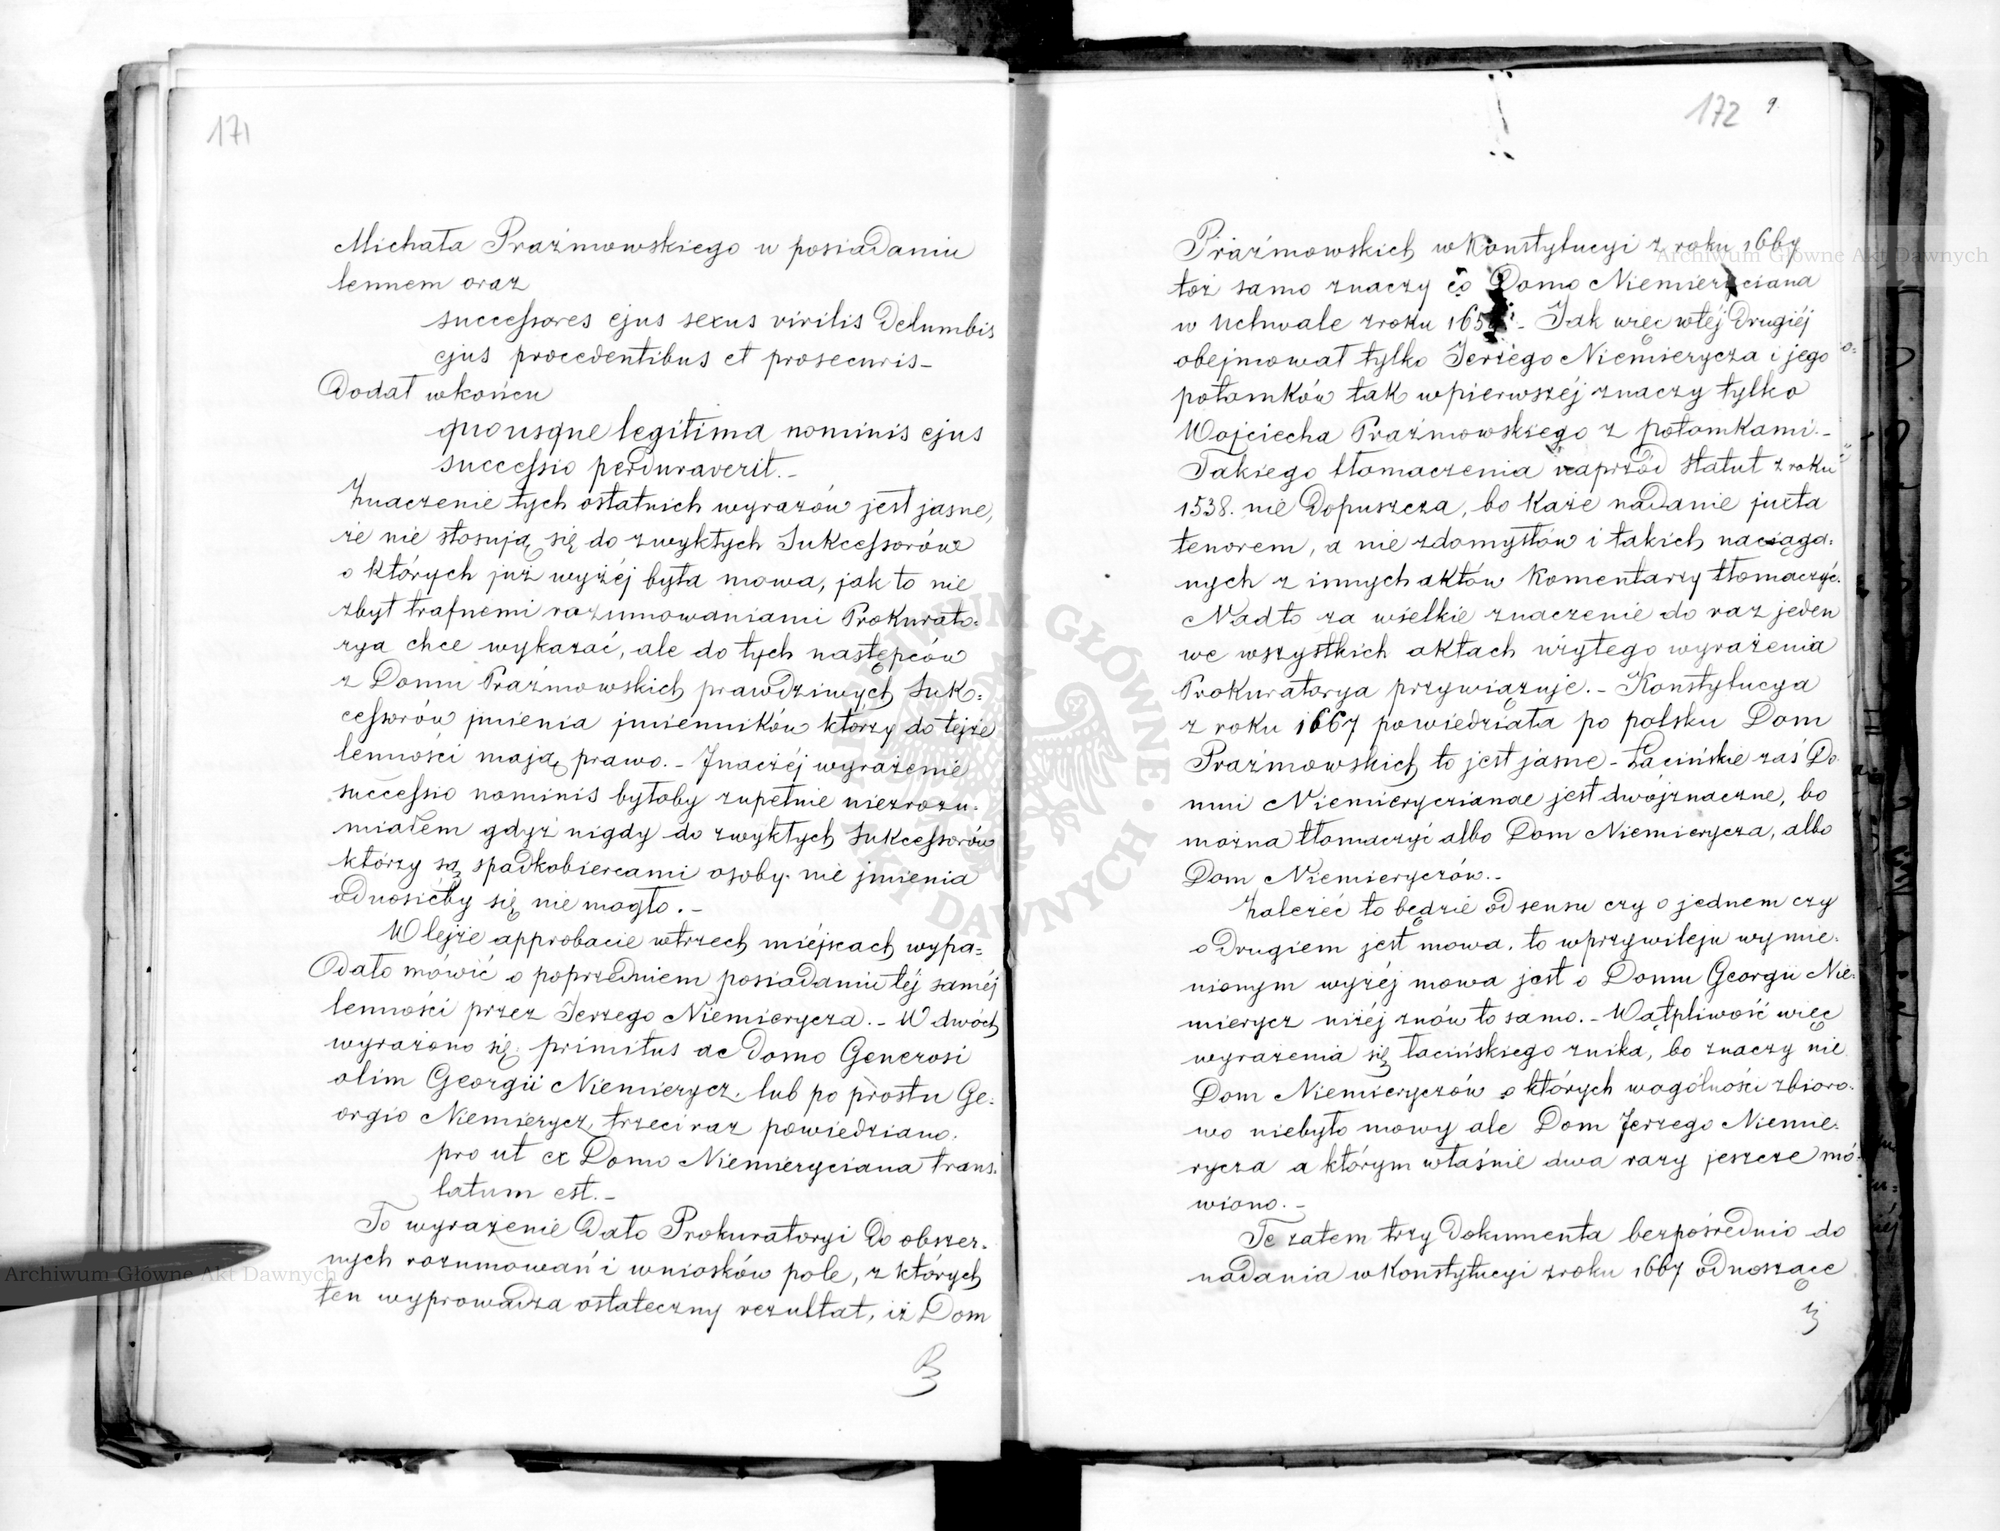 171
Michała Prażmowskiego w posiadaniu
lennem oraz
successores ejus sexus virilis de lumbis
ejus procedentibus et prosecuris –
Dodał wkońcu
quousque legitima nominis ejus
successio perduraverit. –
Znaczenie tych ostatnich wyrazów jest jasne,
że nie stosują się do zwykłych Sukcessorów
o których już wyżéj była mowa, jak to nie
zbyt trafnemi rozumowaniami Prokurato=
rya chce wykazać, ale do tych następców
z Domu Prażmowskich prawdziwych Suk=
cessorów jmienia jmienników którzy do tejże
lenności mają prawo. – Jnaczéj wyrażenie
successio nominis byłoby zupełnie niezrozu=
miałem gdyż nigdy do zwykłych Sukcessorów
którzy są spadkobiercami osoby nie jmienia
odnosićby się nie mogło. –
W tejże approbacie wtrzech miéjscach wypa=
dało mówić o poprzedniem posiadaniu téj saméj
lenności przez Jerzego Niemierycza. – W dwóch
wyrażono się primitus ac domo Generosi
olim Georgii Niemierycz, lub po prostu Ge=
orgio Niemierycz, trzeci raz powiedziano.
pro ut ex Domo Niemieryciana trans=
latum est. –
To wyrażenie dało Prokuratoryi do obszer=
nych rozumowań i wniosków pole, z których
ten wyprowadza ostateczny rezultat, iż Dom
172 9.
Prażmowskich w Konstytucyi z roku 1667
toż samo znaczy co Domo Niemieryciana
w Uchwale zroku 165 – Jak więc wtéj drugiéj
obejmował tylko Jerzego Niemierycza i jego
potomków tak wpierwszéj znaczy tylko
Wojciecha Prażmowskiego z potomkami. –
Takiego tłomaczenia naprzód Statut z roku
1538. nie dopuszcza, bo każe nadanie juxta
tenorem, a nie zdomysłów i takich naciąga=
nych z innych aktów Komentarzy tłomaczyć.
Nadto za wielkie znaczenie do raz jeden
we wszystkich aktach użytego wyrażenia
Prokuratorya przywiązuje. – Konstytucya
z roku 1667 powiedziała po polsku Dom
Prażmowskich to jest jasne – Łacińskie zaś Do
mui Niemierycianae jest dwójznaczne, bo
można tłomaczyć albo Dom Niemierycza, albo
Dom Niemieryczów. –
Zależéć to będzie od sensu czy o jednem czy
o drugiem jest mowa, to wprzywileju wymie=
nionym wyżéj mowa jest o Domu Georgii Nie=
mierycz niżéj znów to samo. – Wątpliwość więc
wyrażenia się łacińskiego znika, bo znaczy nie
Dom Niemieryczów o których wogólności zbioro=
wo niebyło mowy ale Dom Jerzego Niemie=
rycza o którym właśnie dwa razy jeszcze mó=
wiono. –
Te zatem trzy dokumenta bezpośrednio do
nadania w Konstytucyi zroku 1667 odnoszące
Archiwum Główne Akt Dawnych
Archiwum Główne Akt Dawnych
ARCHIWUM GŁÓWNE AKT DAWNYCH